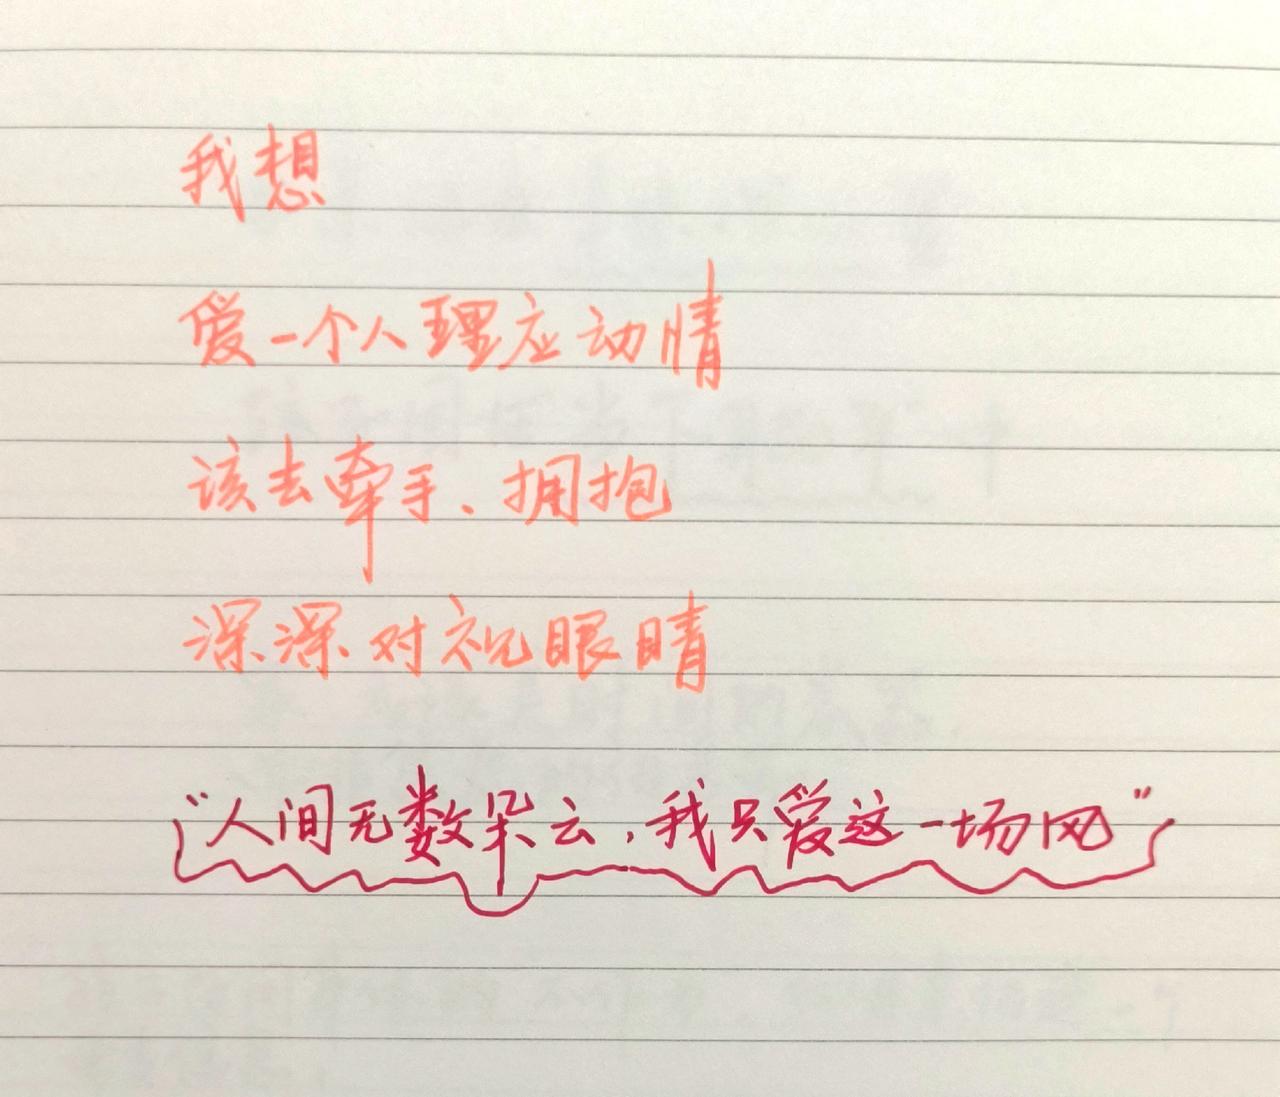 我想
爱一个人理应动情
该去牵手、拥抱
深深对视眼睛
“人间无数朵云，我只爱这一场风”